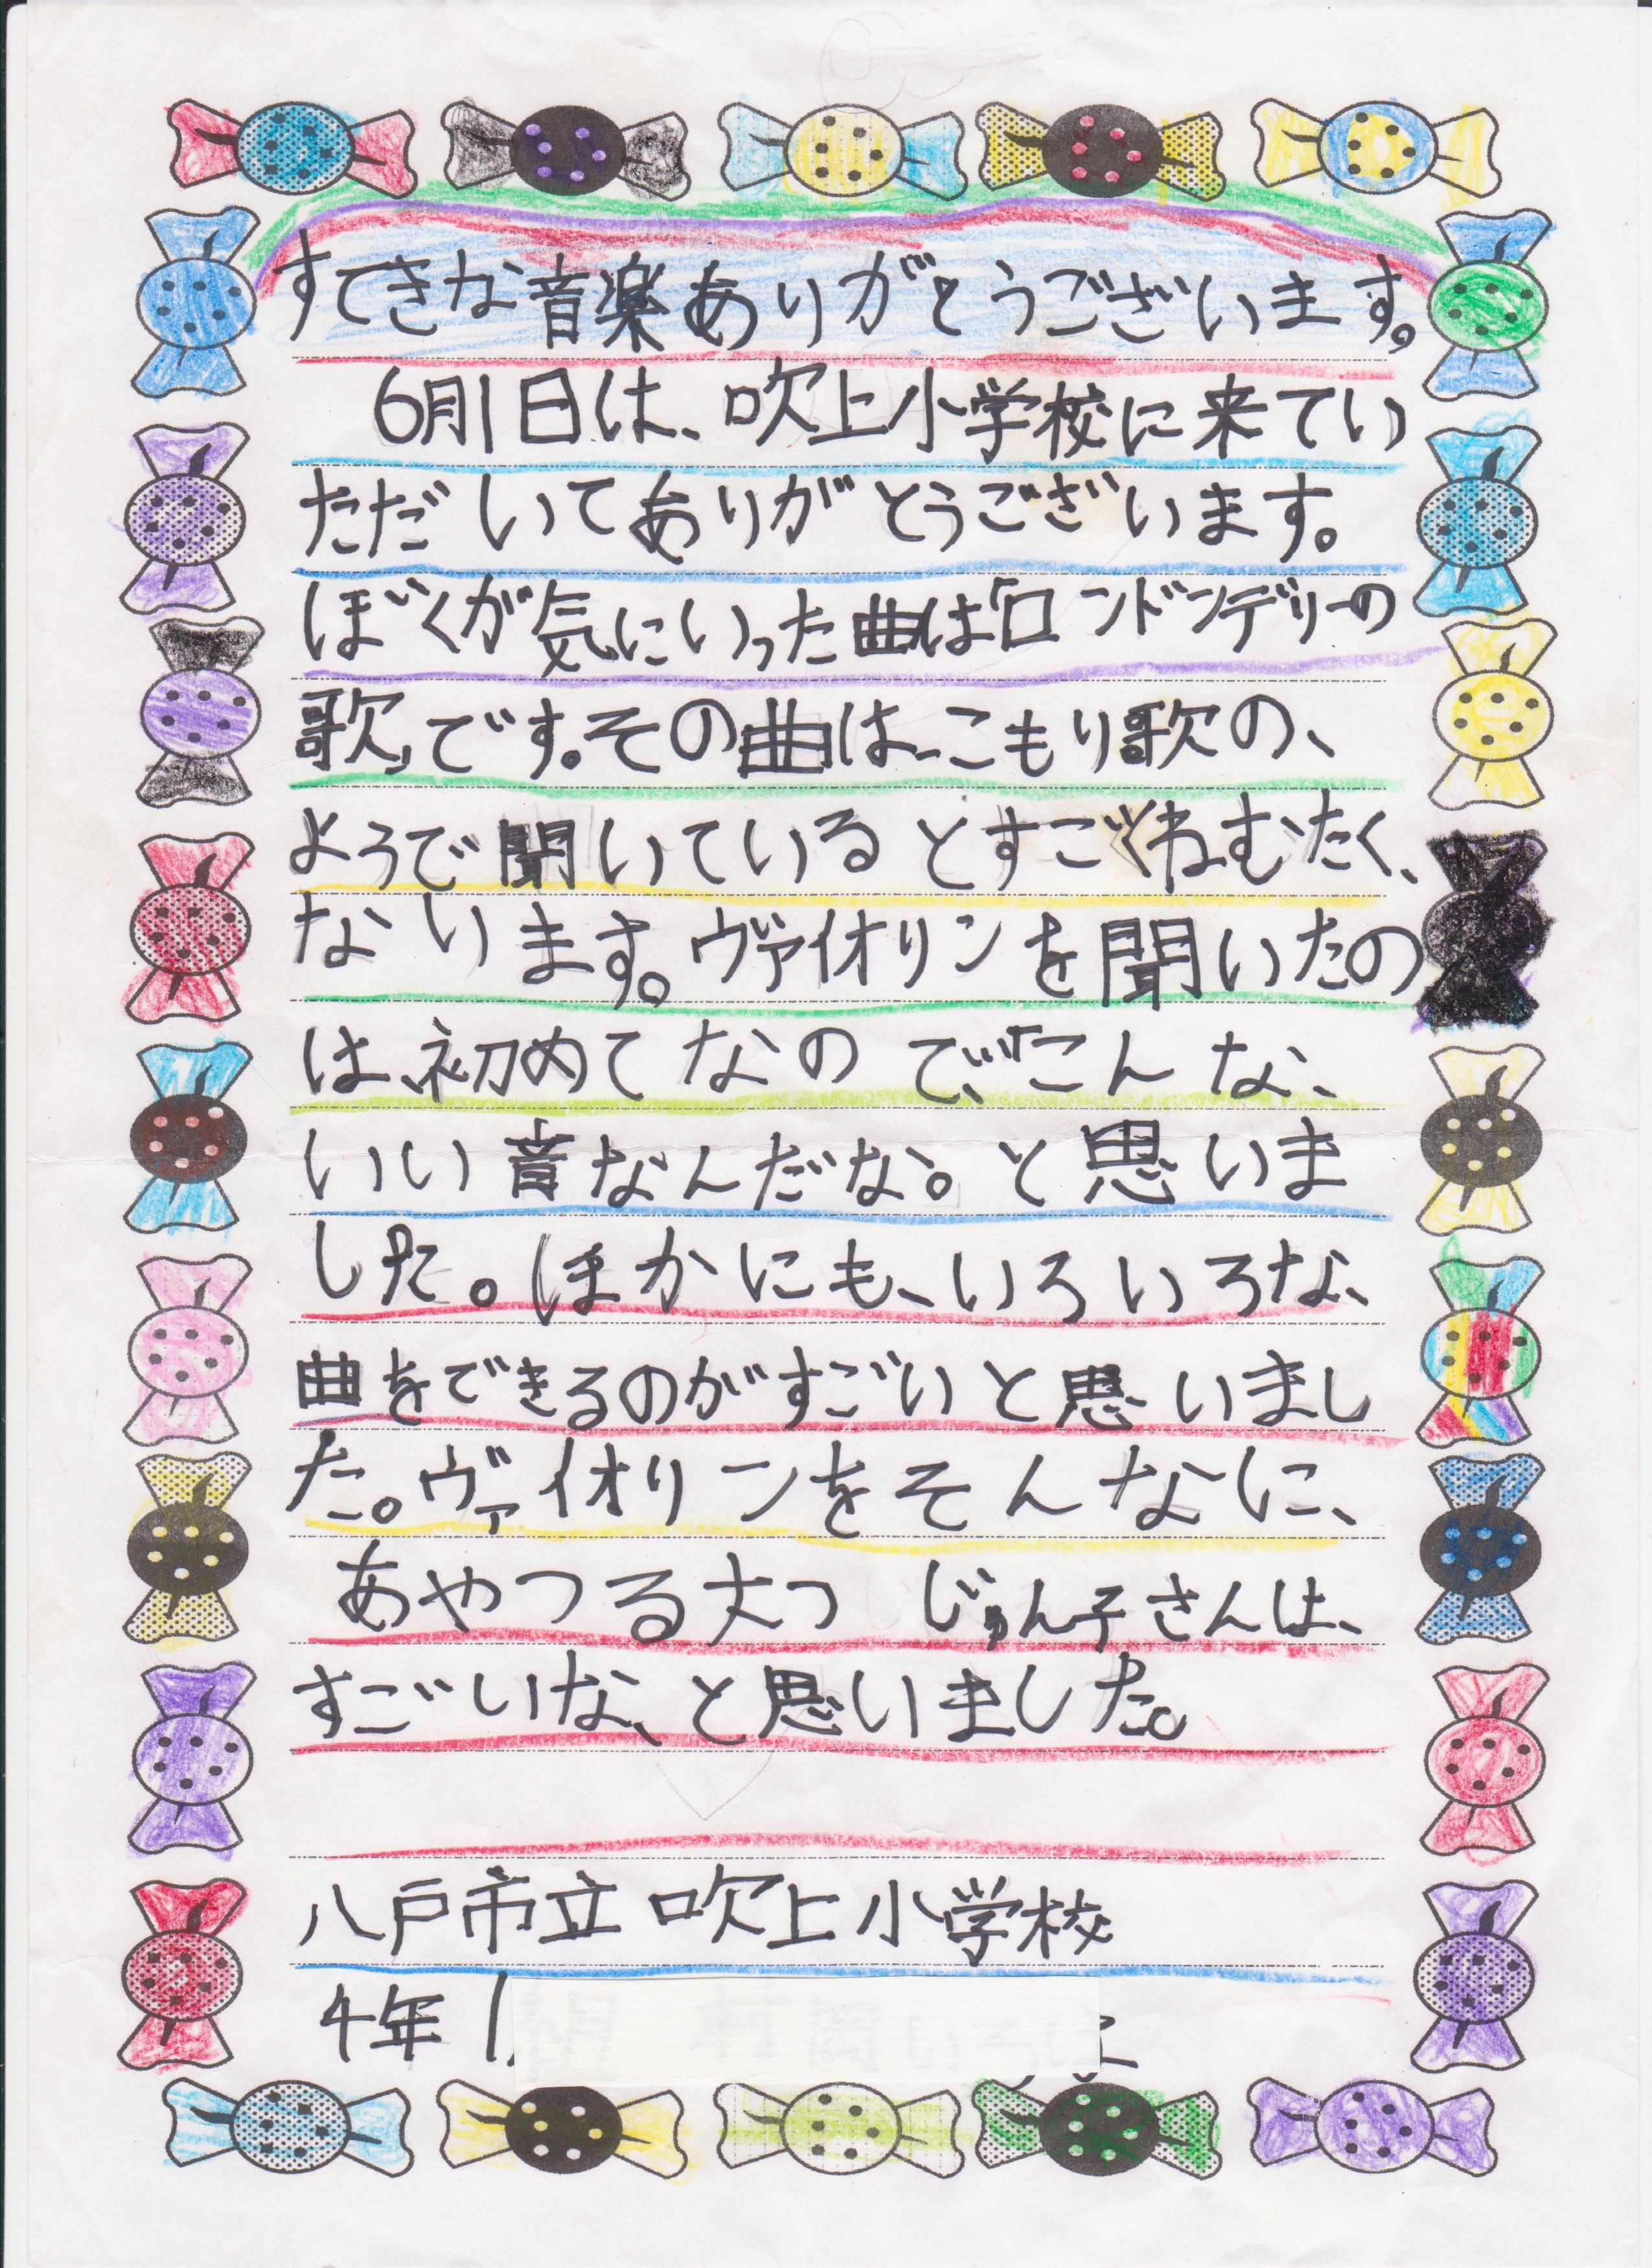 すてきな音楽ありがとうございます。
6月1日は、吹上小学校に来てい
ただいてありがとうございます。
ぼくが気にいった曲は「ロンドンデリーの
歌」です。その曲は、こもり歌の、
ようで聞いているとすごくねむたく、
ないます。ヴァイオリンを聞いたの
は、初めてなので、「こんな、
いい音なんだな。と思いま
した。ほかにも、いろいろな、
曲をできるのがすごいと思いまし
た。ヴァイオリンをそんなに、
あやつる大つ じゅん子さんは、
すごいな、と思いました。
八戸市立吹上小学校
4年1